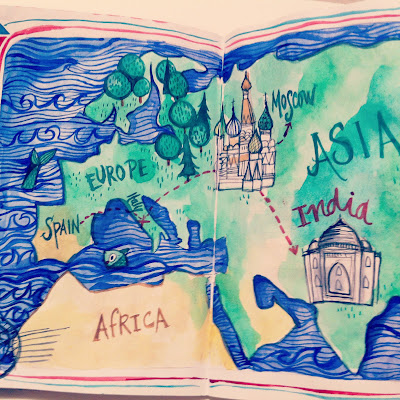 MOSCOW
ASIA
EUROPE
India
Italy
SPAIN
AFRICA